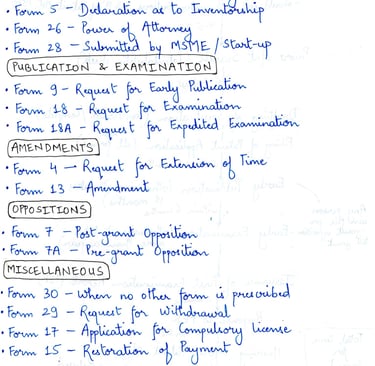 • Form 5 - Declaration as to Inventorship
• Form 26 - Power of Attorney
• Form 28 - Submitted by MSME / Start-up
PUBLICATION & EXAMINATION
• Form 9 - Request for Early Publication
• Form 18 - Request for Examination
• Form 18A - Request for Expedited Examination
AMENDMENTS
• Form 4 - Request for Extension of Time
• Form 13 - Amendment
OPPOSITIONS
• Form 7 - Post-grant Opposition
• Form 7A - Pre-grant Opposition
MISCELLANEOUS
• Form 30 - When no other form is prescribed
• Form 29 - Request for Withdrawal
• Form 17 - Application for Compulsory License
• Form 15 - Restoration of Payment